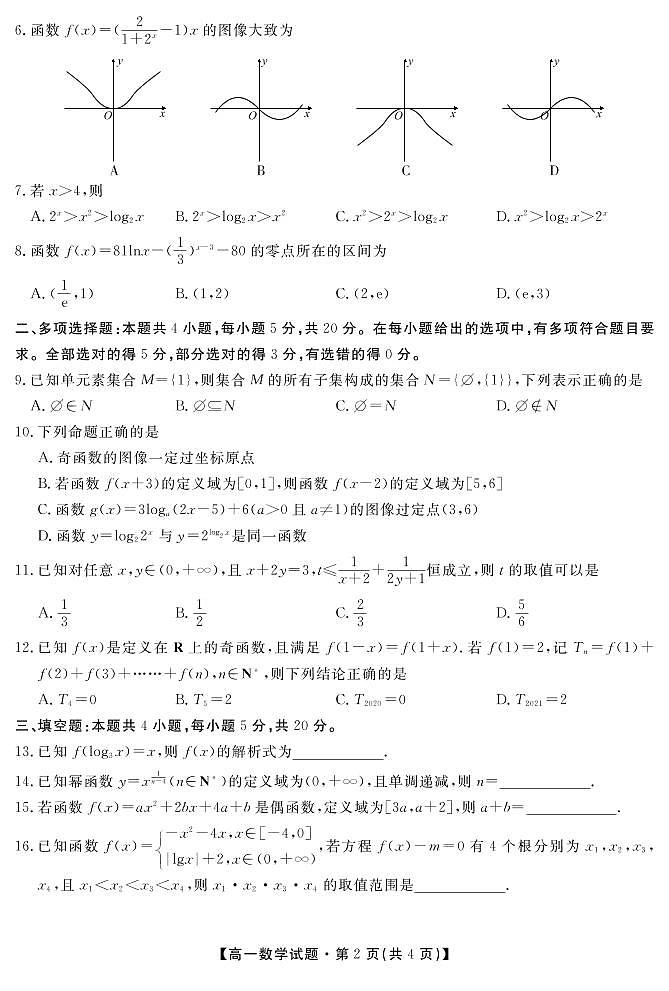 6. 函数 f(x)=(2/(1+2^x)-1)x 的图像大致为
y y y y
O x O x O x O x
A B C D
7. 若 x>4,则
A. 2^x>x^2>log_2x B. 2^x>log_2x>x^2 C. x^2>2^x>log_2x D. x^2>log_2x>2^x
8. 函数 f(x)=81lnx-(1/3)^(x-3)-80 的零点所在的区间为
A. (1/e,1) B. (1,2) C. (2,e) D. (e,3)
二、多项选择题:本题共 4 小题,每小题 5 分,共 20 分。在每小题给出的选项中,有多项符合题目要
求。全部选对的得 5 分,部分选对的得 3 分,有选错的得 0 分。
9. 已知单元素集合 M={1},则集合 M 的所有子集构成的集合 N={∅,{1}},下列表示正确的是
A. ∅∈N B. ∅⊆N C. ∅=N D. ∅∉N
10. 下列命题正确的是
A. 奇函数的图像一定过坐标原点
B. 若函数 f(x+3)的定义域为[0,1],则函数 f(x-2)的定义域为[5,6]
C. 函数 g(x)=3log_a(2x-5)+6(a>0 且 a≠1)的图像过定点(3,6)
D. 函数 y=log_2 2^x 与 y=2^(log_2x)是同一函数
11. 已知对任意 x,y∈(0,+∞),且 x+2y=3,t≤1/(x+2)+1/(2y+1)恒成立,则 t 的取值可以是
A. 1/3 B. 1/2 C. 2/3 D. 5/6
12. 已知 f(x)是定义在 R 上的奇函数,且满足 f(1-x)=f(1+x). 若 f(1)=2,记 T_n=f(1)+
f(2)+f(3)+……+f(n),n∈N*,则下列结论正确的是
A. T_4=0 B. T_5=2 C. T_2020=0 D. T_2021=2
三、填空题:本题共 4 小题,每小题 5 分,共 20 分。
13. 已知 f(log_3x)=x,则 f(x)的解析式为____________.
14. 已知幂函数 y=x^(1/(n-4))(n∈N*)的定义域为(0,+∞),且单调递减,则 n=____________.
15. 若函数 f(x)=ax^2+2bx+4a+b 是偶函数,定义域为[3a,a+2],则 a+b=____________.
16. 已知函数 f(x)={-x^2-4x,x∈[-4,0] |lgx|+2,x∈(0,+∞),若方程 f(x)-m=0 有 4 个根分别为 x_1,x_2,x_3,
x_4,且 x_1<x_2<x_3<x_4,则 x_1·x_2·x_3·x_4 的取值范围是____________.
【高一数学试题·第 2 页(共 4 页)】